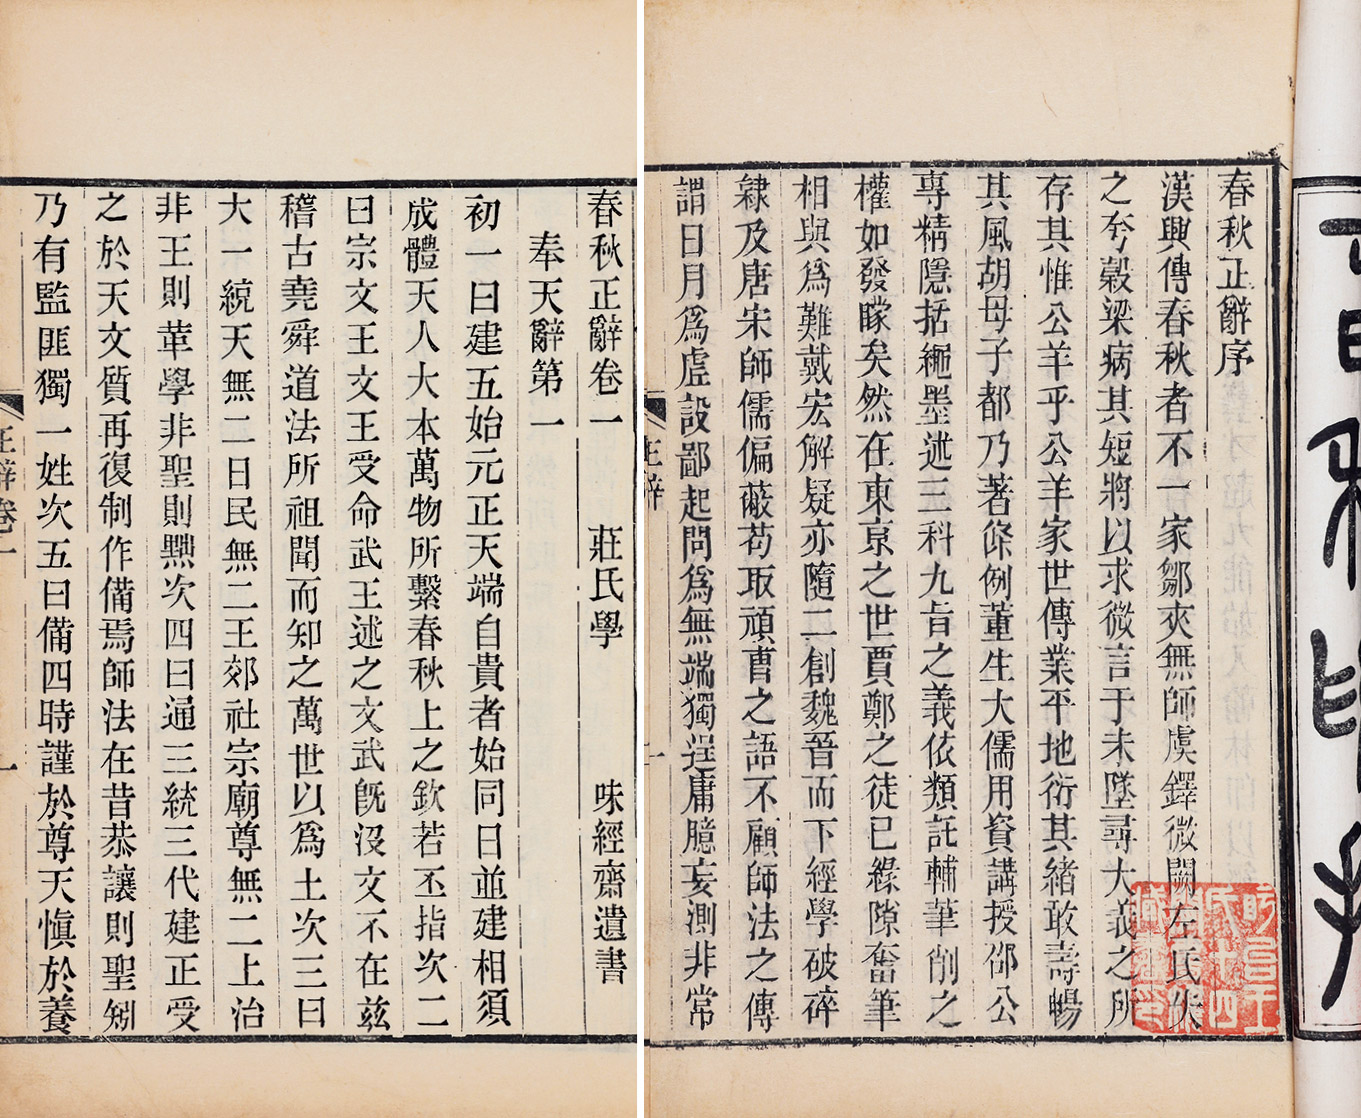 春秋正辭序
漢興傳春秋者不一家鄒夾無師虞鐸微闕左氏失
之夸穀梁病其短將以求微言于未墜尋大義之所
存其惟公羊乎公羊家世傳業平地衍其緒敢壽暢
其風胡母子都乃著條例董生大儒用資講授邵公
專精隱括繩墨述三科九旨之義依類託輔筆削之
權如發矇矣然在東京之世賈鄭之徒已緣隙奮筆
相與爲難戴宏解疑亦隨二創魏晉而下經學破碎
隸及唐宋師儒偏蔽苟取頑曹之語不顧師法之傳
謂日月爲虛設鄙起問爲無端獨逞庸臆妄測非常
正辭
一
春秋正辭卷一 莊氏學 味經齋遺書
奉天辭第一
初一曰建五始元正天端自貴者始同日並建相須
成體天人大本萬物所繫春秋上之欽若丕指次二
曰宗文王文王受命武王述之文武旣沒文不在兹
稽古堯舜道法所祖聞而知之萬世以爲土次三曰
大一統天無二日民無二王郊社宗廟尊無二上治
非王則革學非聖則黜次四曰通三統三代建正受
之於天文質再復制作備焉師法在昔恭讓則聖矧
乃有監匪獨一姓次五曰備四時謹於尊天愼於養
正辭卷一
一